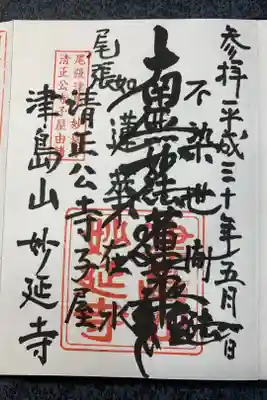 参拝 平成三十年五月一日
不染世間法
南無妙法蓮華経
如蓮華在水
尾張
清正公寺子屋
津島山 妙延寺
尾張津島 妙延寺
清正公寺子屋由緒
妙延寺